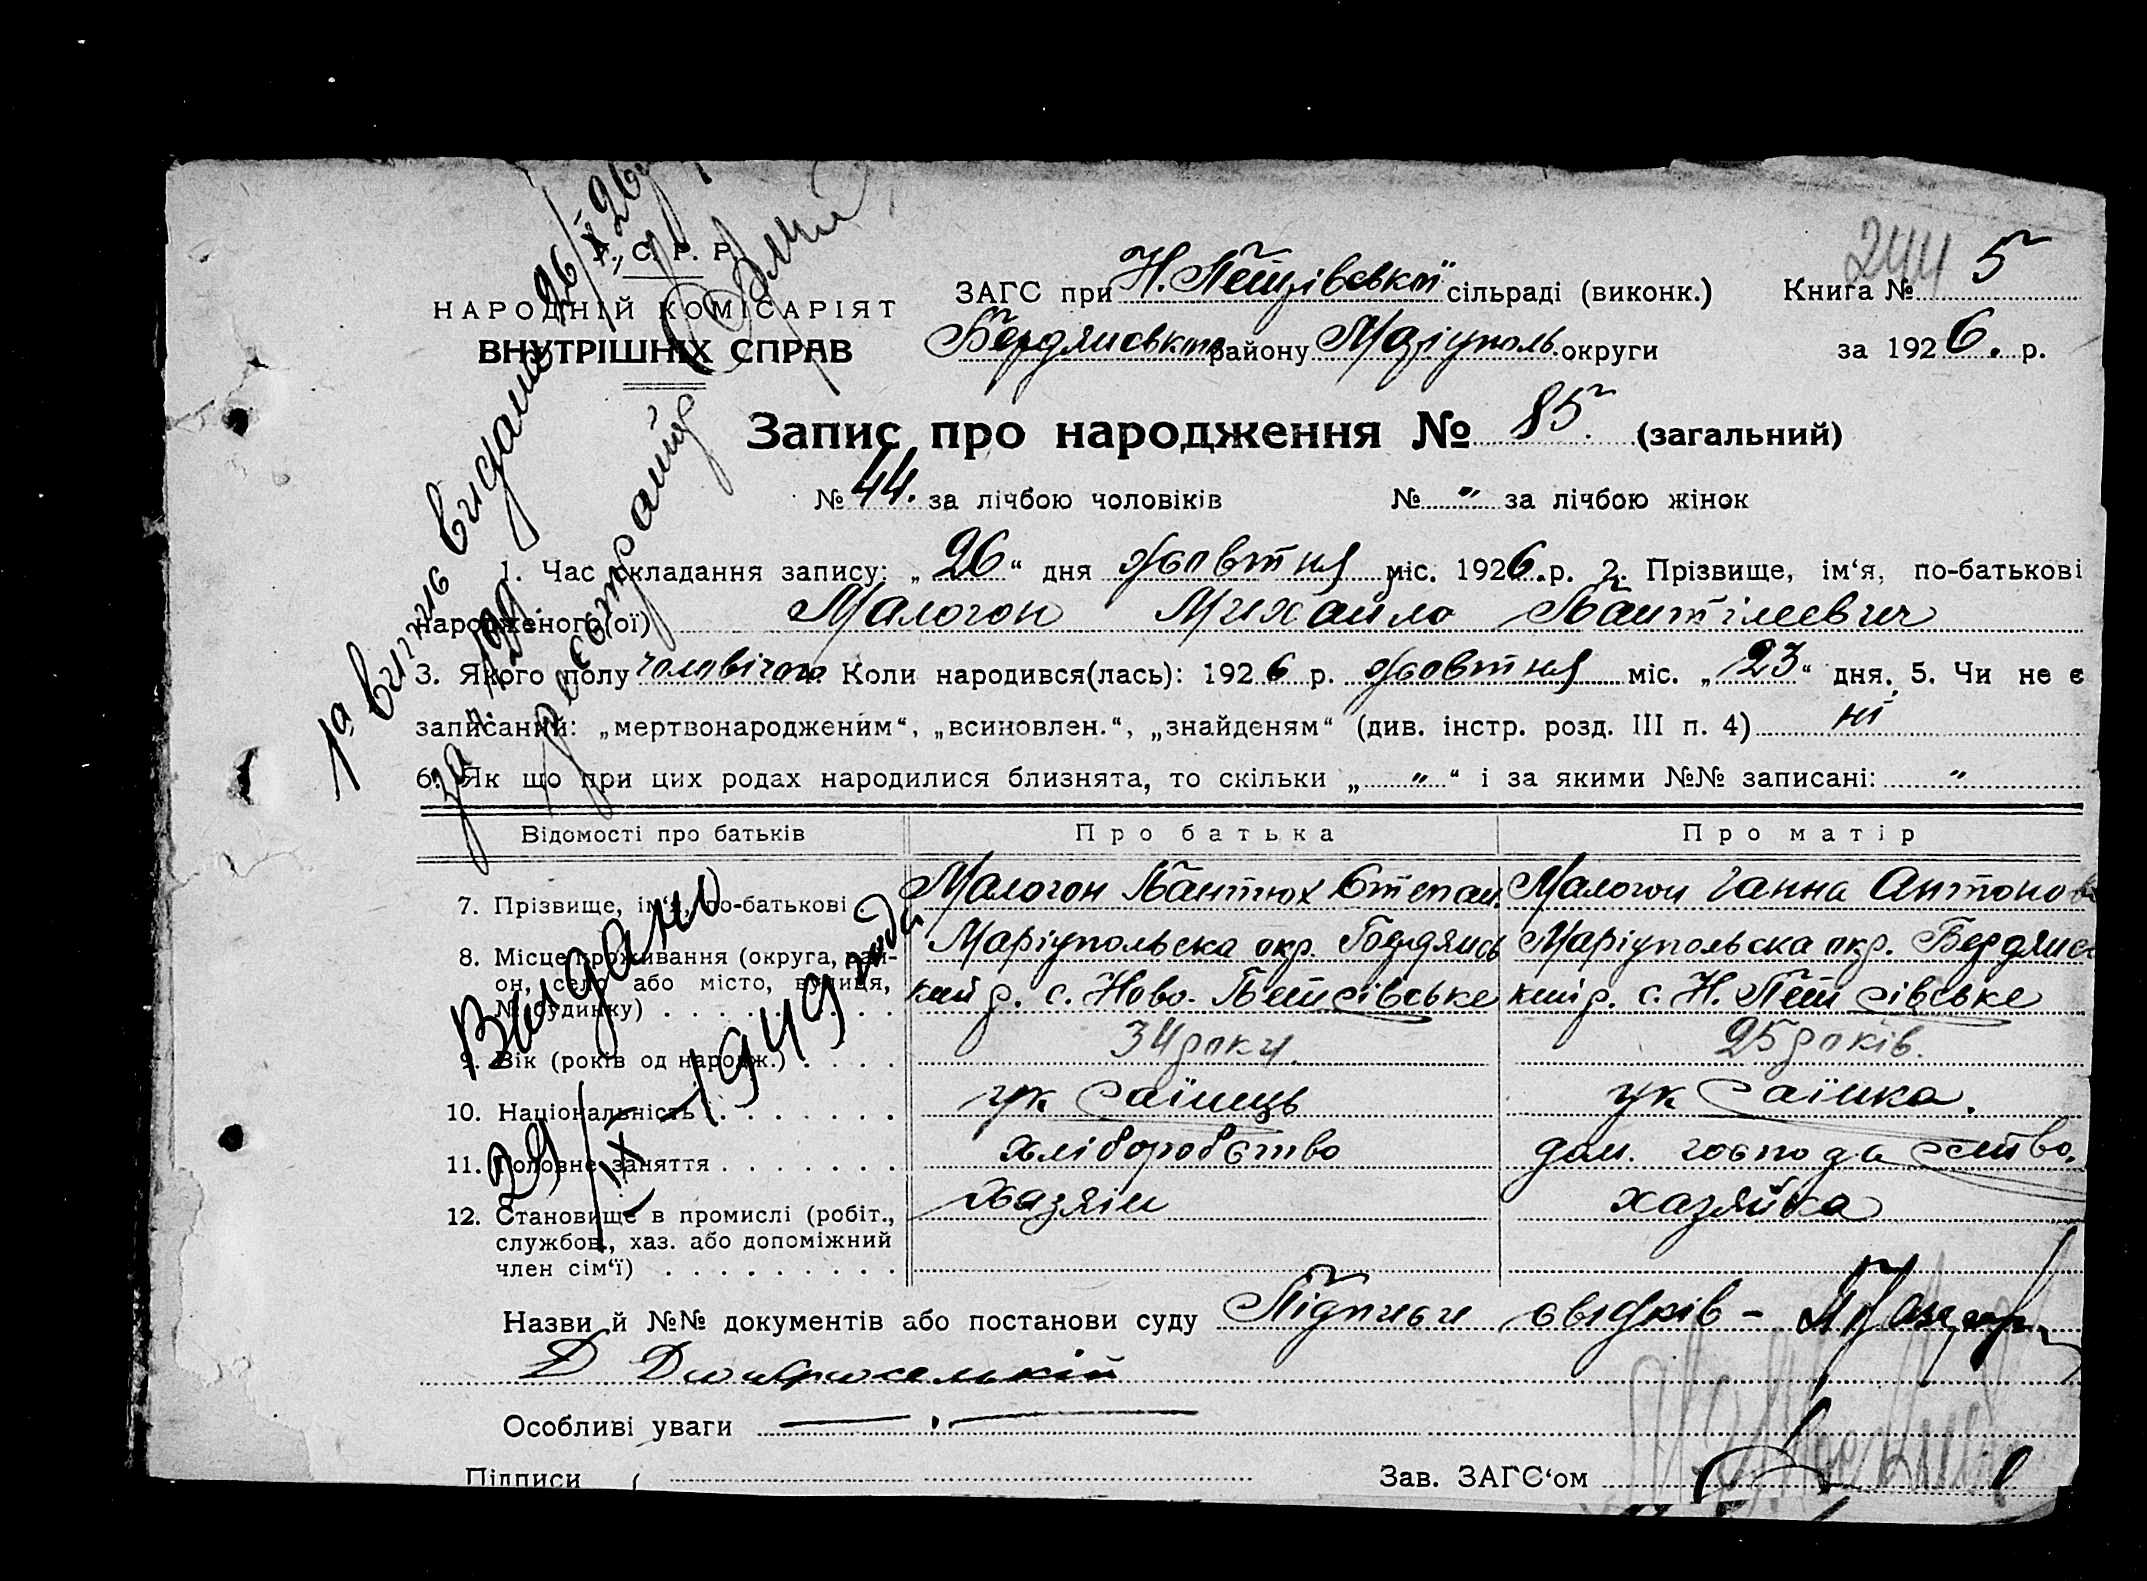 У. С. Р. Р.
НАРОДНІЙ КОМІСАРІЯТ
ВНУТРІШНІХ СПРАВ
ЗАГС при Н. Петрівській сільраді (виконк.)
Бердянського району Маріуполь. округи
244
Книга № 5
за 1926. р.
Запис про народження № 85. (загальний)
№ 44. за лічбою чоловіків № " за лічбою жінок
1. Час складання запису: „26“ дня жовтня міс. 1926.р. 2. Прізвище, ім‘я, по-батькові
народженого(ої) Малогон Михайло Пантілеевич
3. Якого полу чоловічого Коли народився(лась): 1926 р. жовтня міс. „23“ дня. 5. Чи не є
записаний: „мертвонародженим“, „всиновлен.“, „знайденям“ (див. інстр. розд. III п. 4) ні
6. Як що при цих родах народилися близнята, то скільки „ " “ і за якими №№ записані: "
Відомості про батьків Про батька Про матір
7. Прізвище, ім‘я, по-батькові Малогон Пантюх Степан. Малогон Ганна Антонов
8. Місце проживання (округа, рай-
он, село або місто, вулиця,
№ будинку)
Маріупольска окр. Бердянсь
кий р. с. Ново-Петрівське
Маріупольска окр. Бердянсь
кий р. с. Н. Петрівське
9. Вік (років од народж.) 34 роки. 25 років.
10. Національність українець українка.
11. Головне заняття хліборобство дом. господарство.
12. Становище в промислі (робіт.,
службов., хаз. або допоміжний
член сім‘ї)
Хазяін хазяйка
Назви й №№ документів або постанови суду Підписи свідків –
Д
Особливі уваги
Підписи
Зав. ЗАГС‘ом
1а витяг видана 26/X 26
за №
реєстрацію
Видано
29/IX – 1949 года